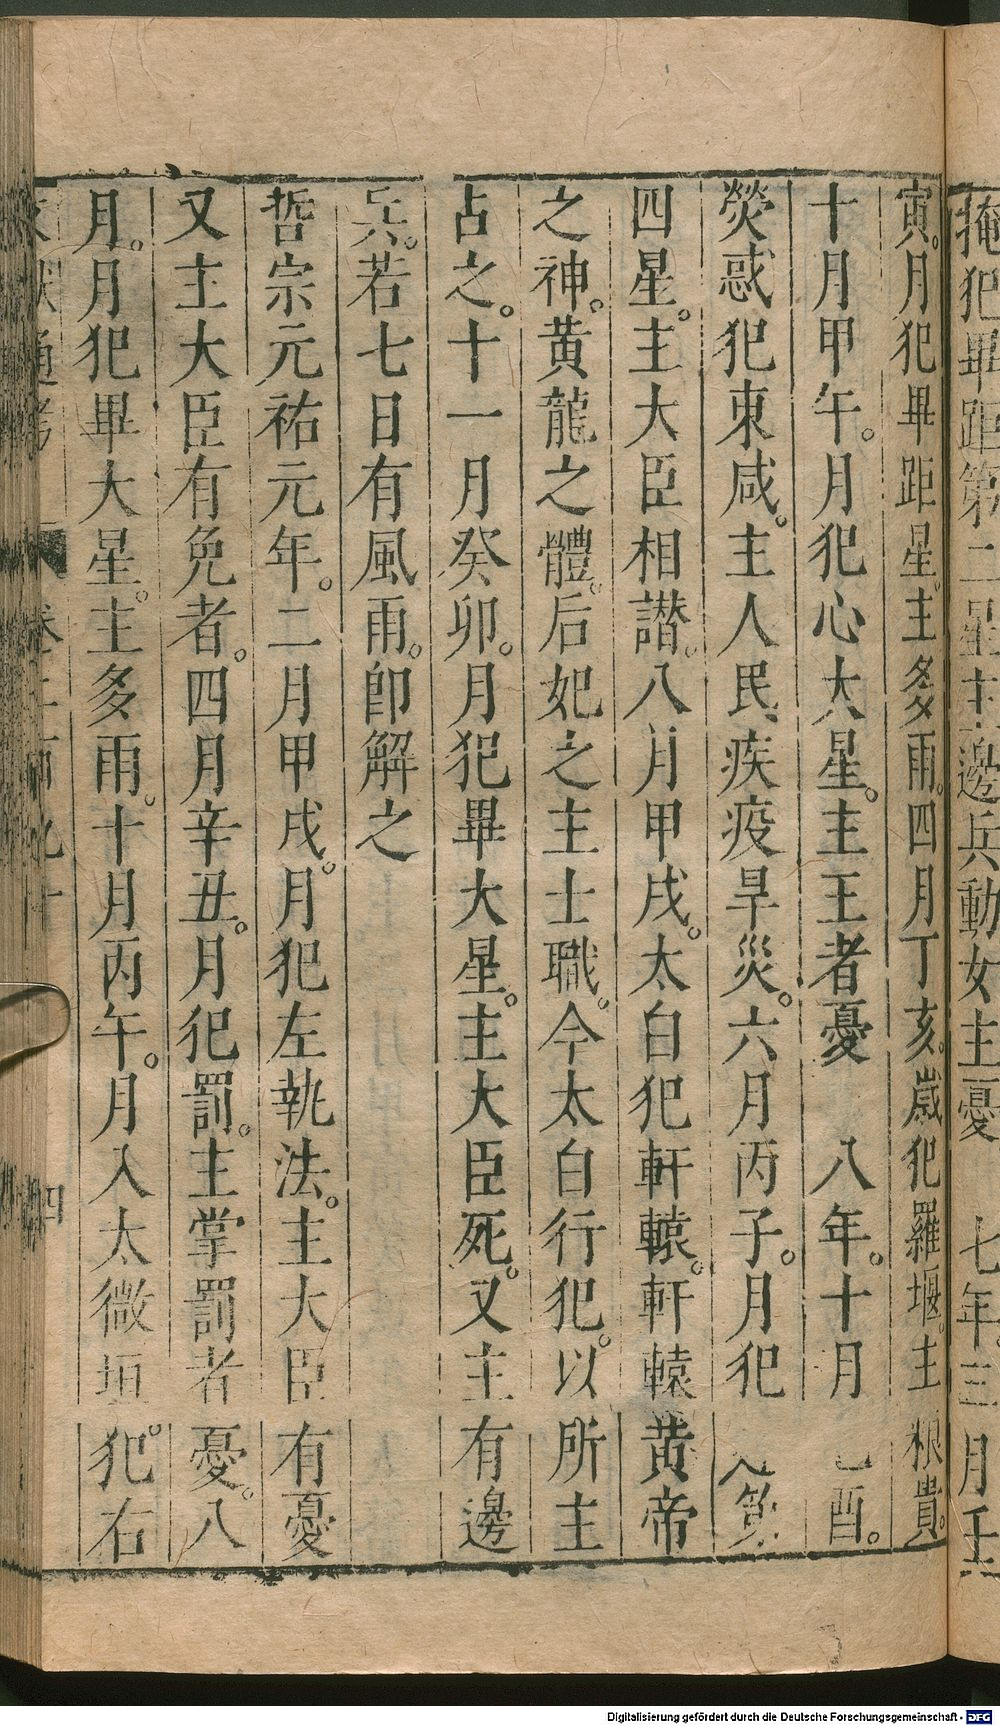 掩犯畢距第二星主邊兵動女主憂　七年三月壬
寅。月犯畢距星。主多雨。四月丁亥。歲犯羅堰。主粮貴。
十月甲午。月犯心大星。主王者憂　八年。十月乙酉。
熒惑犯東咸。主人民疾疫旱災。六月丙子。月犯
四星。主大臣相譖。八月甲戌。太白犯軒轅。軒轅黃帝
之神。黃龍之體。后妃之主士職。今太白行犯。以所主
占之。十一月癸卯。月犯畢大星。主大臣死。又主有邊
兵。若七日有風雨。卽解之
哲宗元祐元年。二月甲戌。月犯左執法。主大臣有憂
又主大臣有免者。四月辛丑。月犯罰。主掌罰者憂。八
月。月犯畢大星。主多雨。十月丙午。月入太微垣犯。右
通考
四
Digitalisierung gefördert durch die Deutsche Forschungsgemeinschaft - DFG